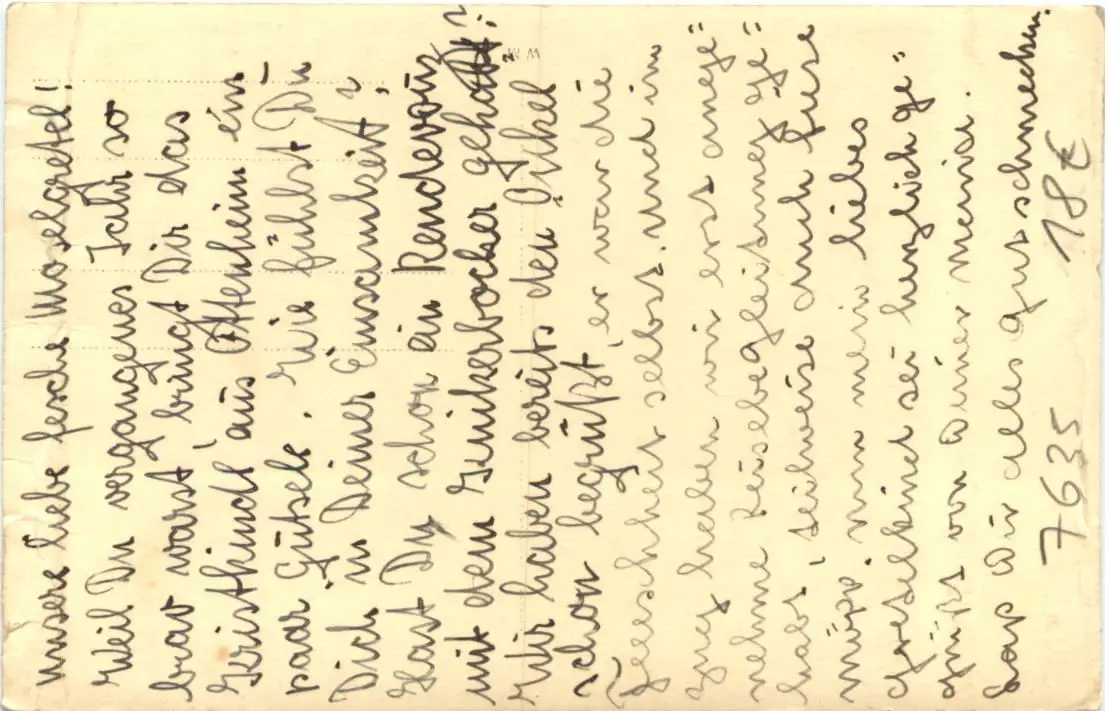 unsere liebe fesche Moselgretel!
Weil Du vergangenes Jahr so
brav warst bringt Dir das
Kristkindl aus Ottenheim ein
paar Gutsele. Wie fühlst Du
Dich in Deiner Einsamkeit?
Hast Du schon ein Rendevous
mit dem Knikerbocker gehabt?
Wir haben bereits den Onkel
schon begrüßt, er war die
Frechheit selbst. und im
Zug haben wir erst ange=
nehme Reisebegleitung ge=
habt, teilweise auch
nun mein liebes
Gretelkind sei herzlich ge=
grüßt von Deiner
Lass Dir alles gut schmecken.
7635 18€